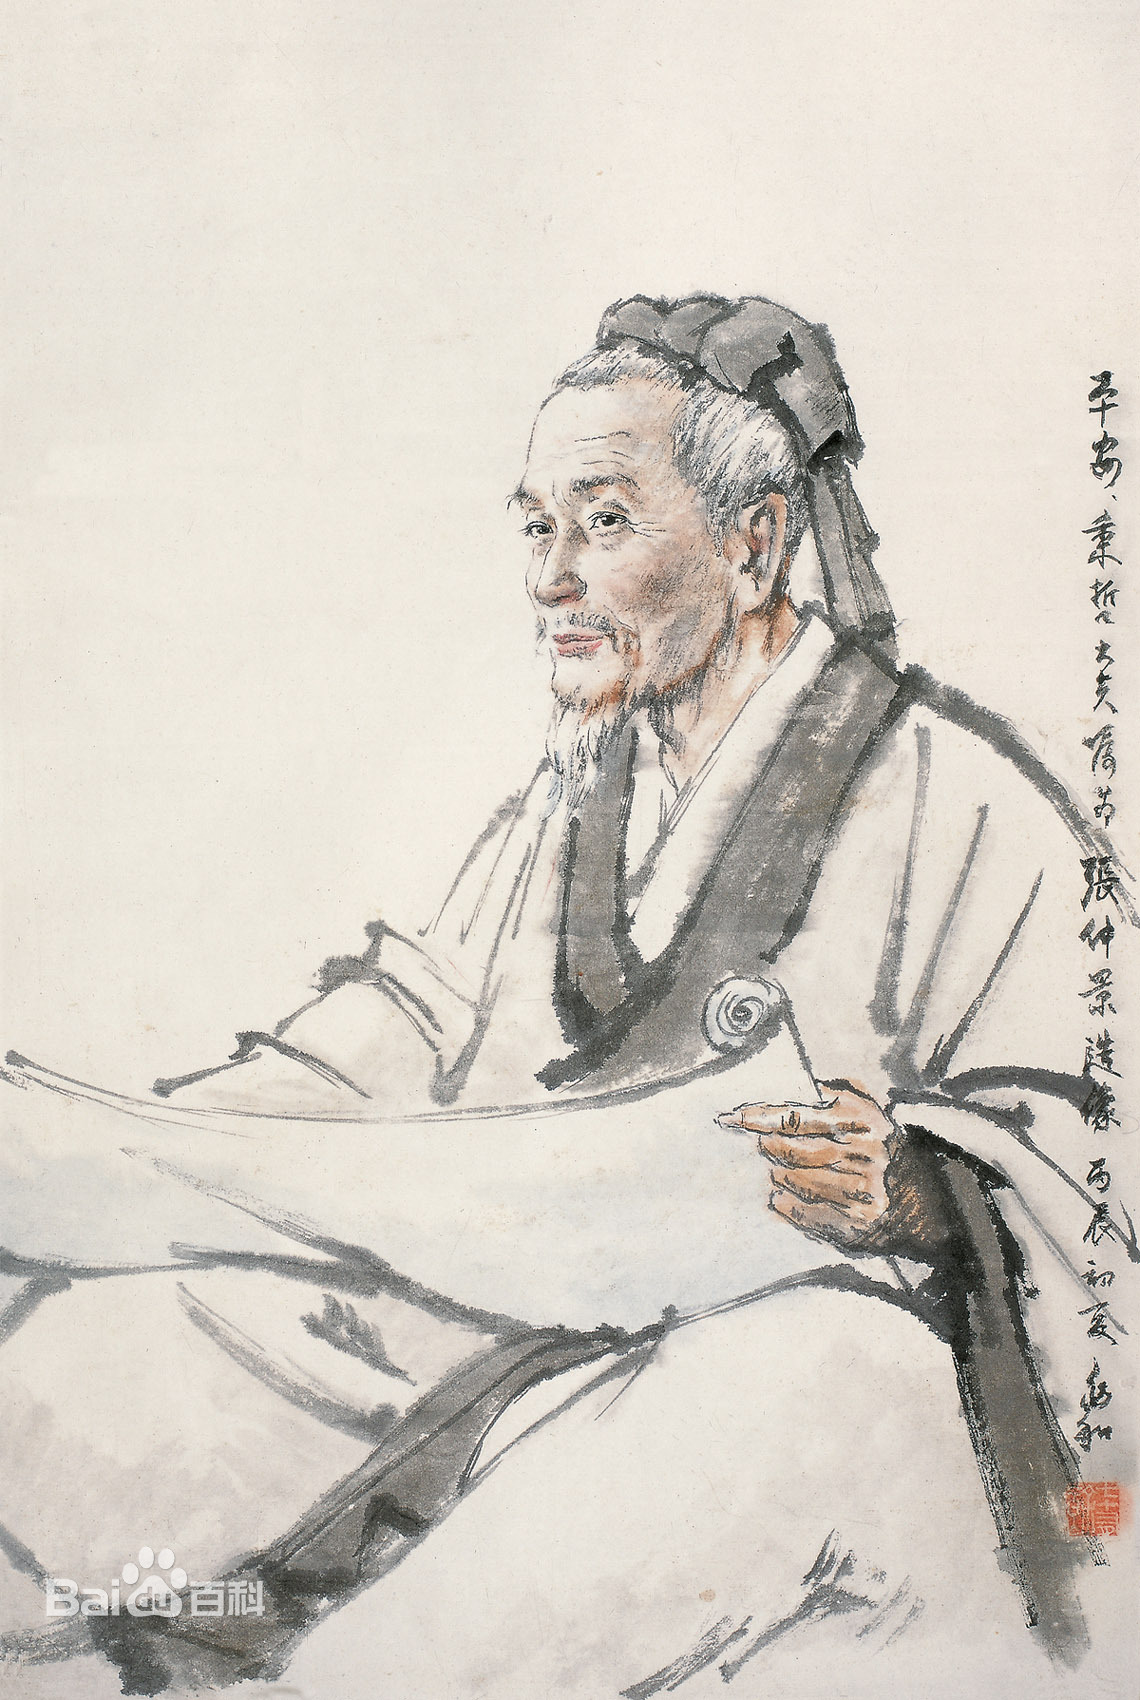 平安、秉哲大夫属书張仲景造像 丙辰初夏 兆和
Bai百科